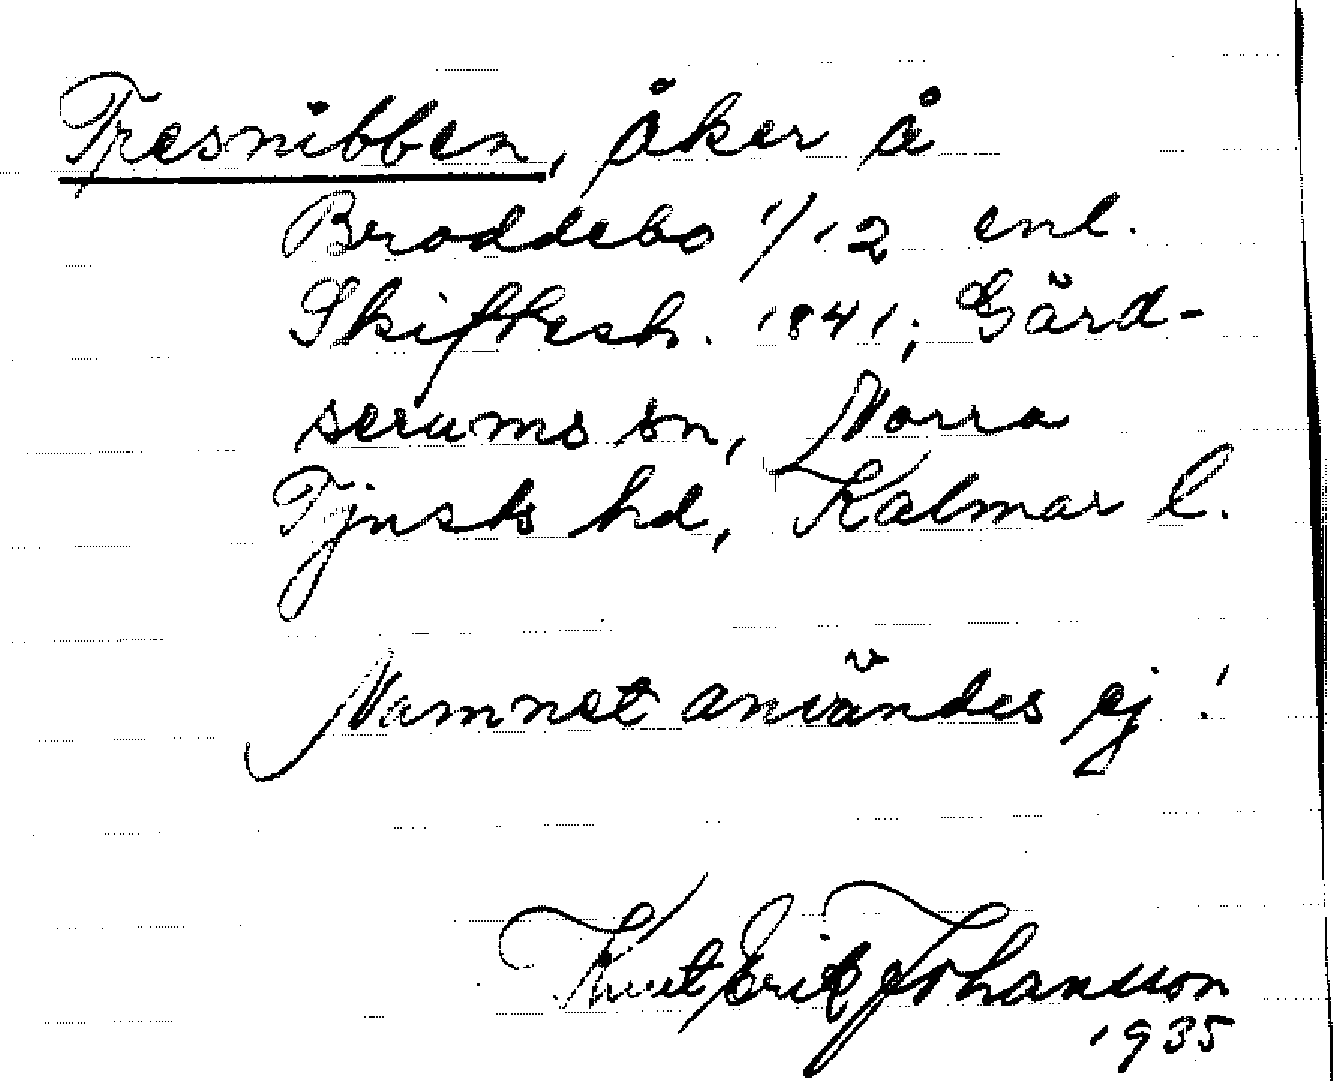 Tresnibben, åker å
Broddebo 1/12 enl.
Skiftesh. 1841; Gärd-
serums sn, Norra
Tjusts hd, Kalmar l.
Namnet användes ej!
Knut Erik Johansson
1935